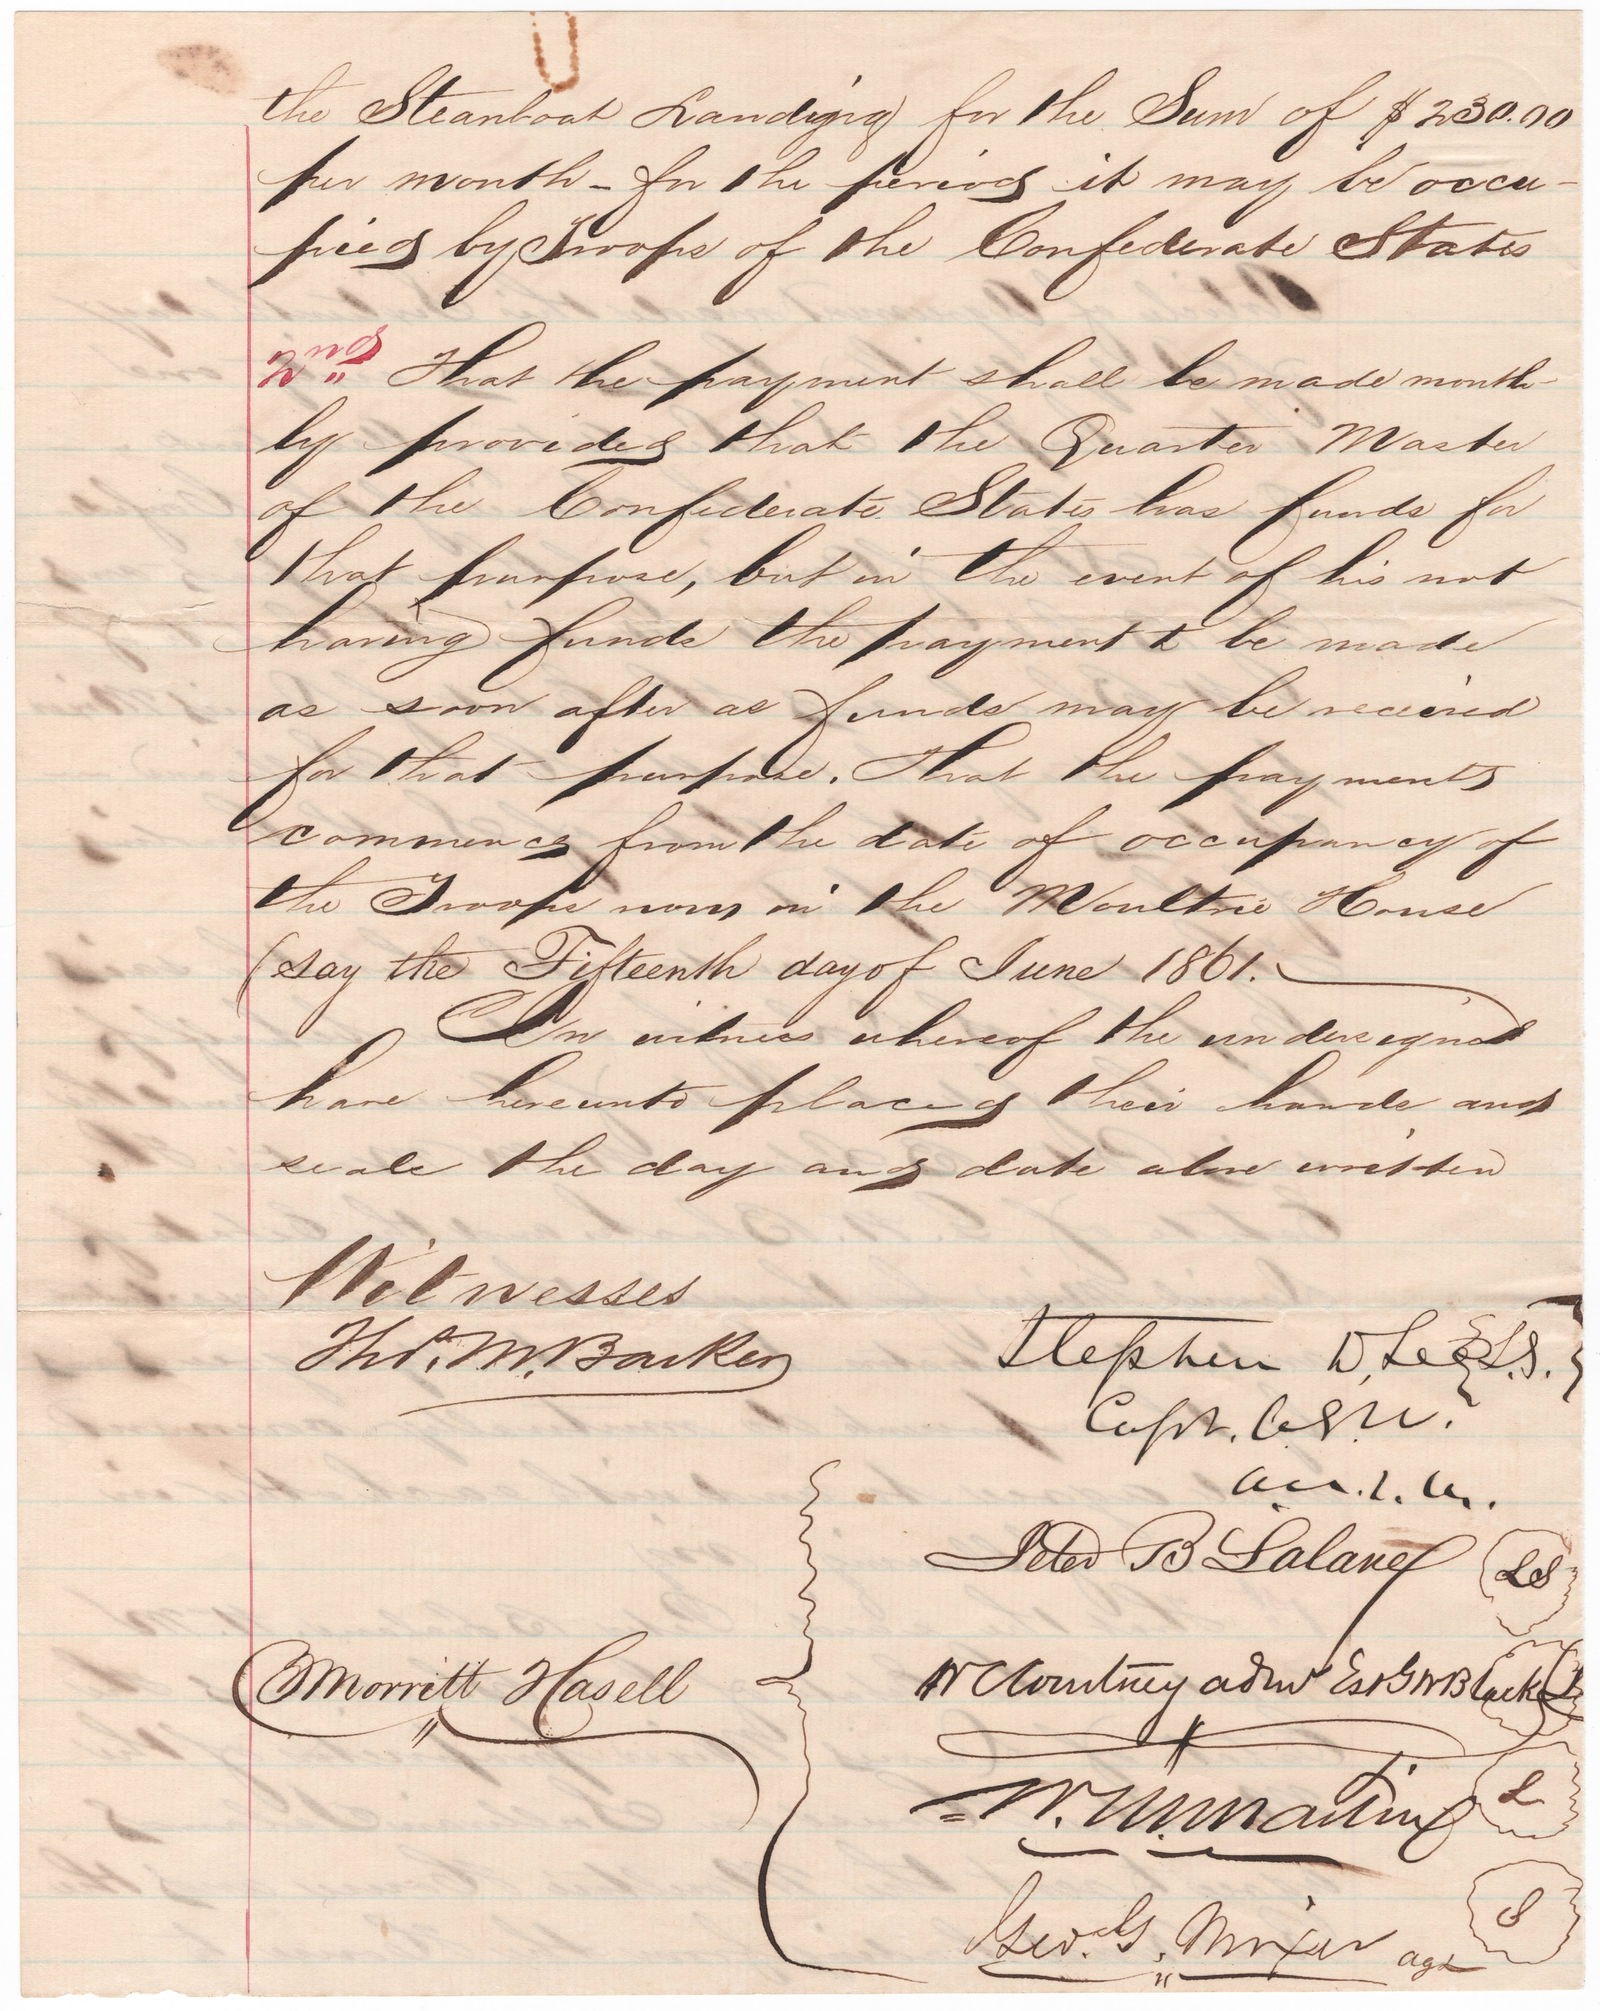 the Steamboat Landing) for the Sum of $230.00
per month - for the period it may be occu-
pied by Troops of the Confederate States
2nd That the payment shall be made month-
ly provided that the Quarter Master
of the Confederate States has funds for
that purpose, but in the event of his not
having funds the payment to be made
as soon after as funds may be received
for that purpose. That the payments
commence from the date of occupancy of
the Troops now in the Moultrie House
(say the Fifteenth day of June 1861.
In witness whereof the undersigned
have hereunto placed their hands and
seals the day and date above written
Witnesses
Thos. M. Barker
Stephen D. Lee L.S.
Capt. C.S.A.
Peter B Lalane LS
Morritt Hasell
W C Courtney admr Est G W Black L
W. M. Martin L
Geo. G. Mixer agt S